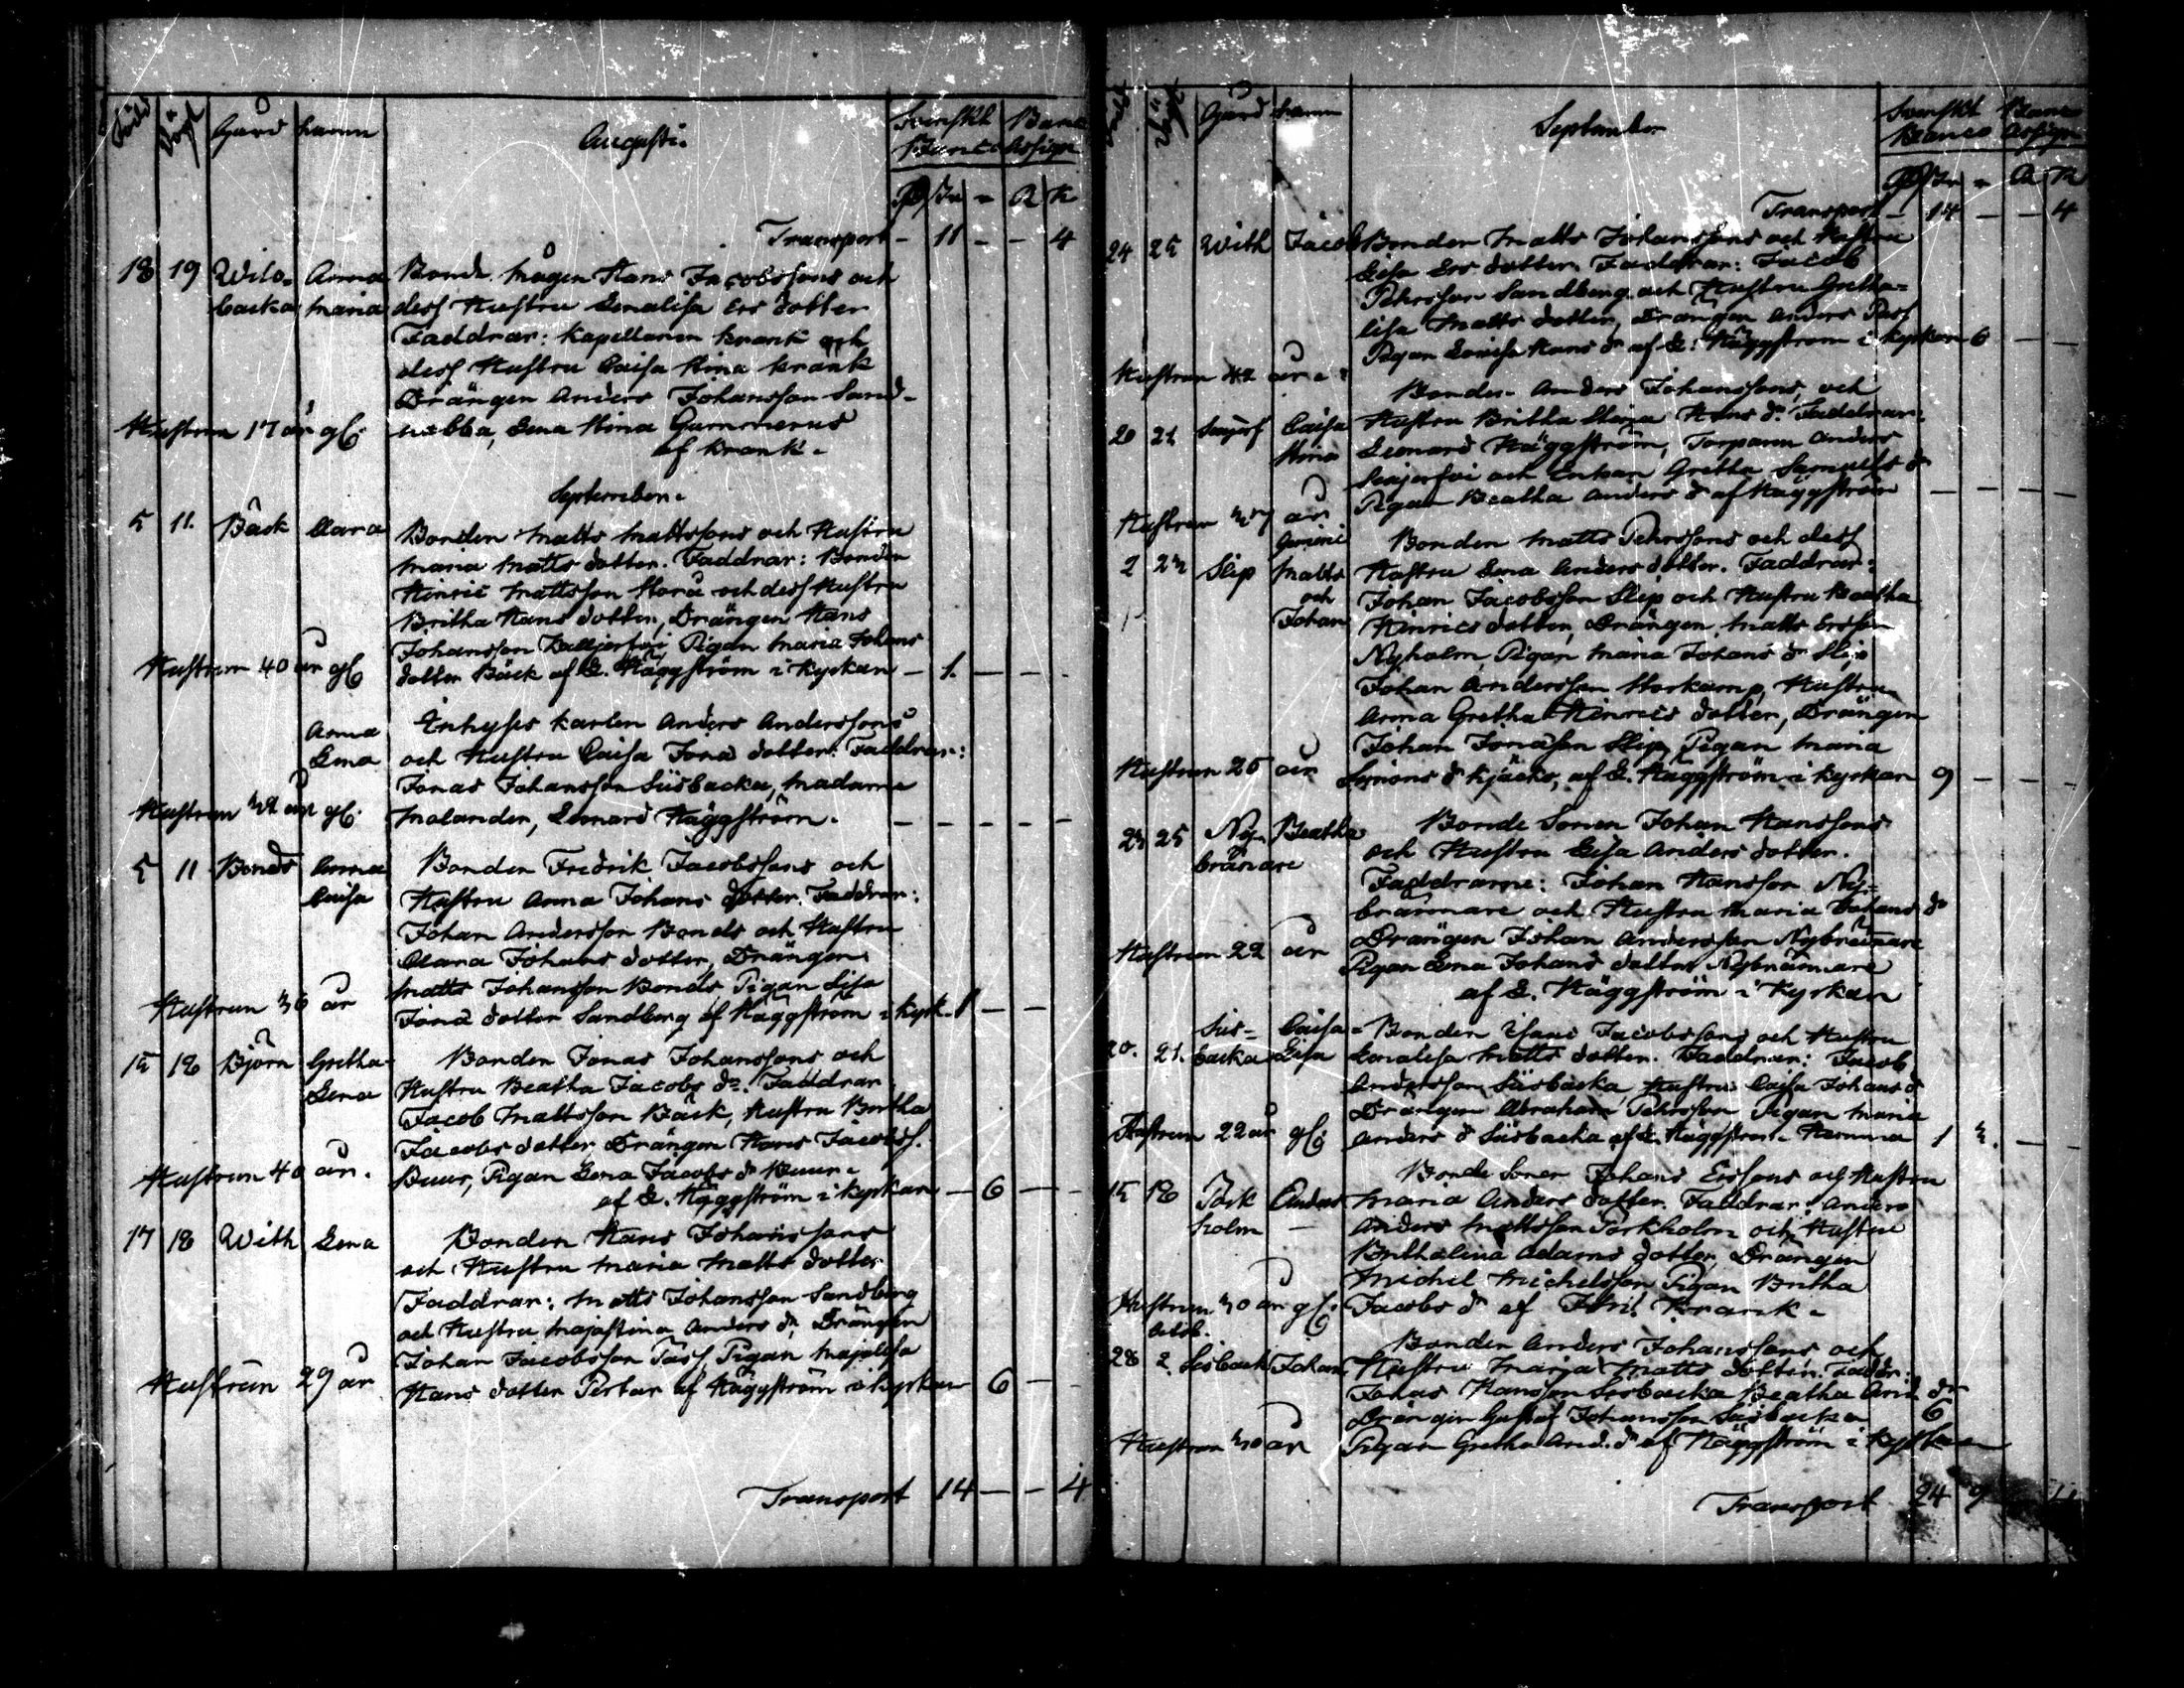 Född Döpt Gård namn Augusti. Svenskt Banco Banc Assign
Transport - 11 - - 4
18 19 Wila- Anna Bonde mågen Hans Jacobssons och
backa maria dess Hustru Lenalisa Ers dotter
Faddrar: Kapellanen Krank och
dess Hustru Caisa Stina Krank
Drängen Anders Johansson Sand-
Hustrun 17 år gl. nabba, Lena Stina Gummerus
af Krank.
September.
5 11. Bäck Clara Bonden Matts Mattssons och Hustru
Maria Matts dotter. Faddrar: Bonden
Hinric Mattsson Storå och dess Hustru
Britha Hans dotter, Drängen Hans
Johansson Pigan Maria Johans
Hustrun 40 år gl. dotter Bäck af L. Häggström i kyrkan - 1. - - -
Anna Inhyses karlen Anders Anderssons
Lena och Hustru Caisa Jona dotter. Faddrar:
Jonas Johansson Siisbacka, madame
Hustrun 32 år gl. Molander, Leonard Häggström. - - - - -
5 11 Bonds Anna Bonden Fredrik Jacobssons och
Caisa Hustru Anna Johans dotter. Faddrar:
Johan Andersson Bonds och Hustru
Clara Johans dotter, Drängen
Matts Johansson Bonds Pigan Lisa
Hustrun 36 år Jona dotter Sandberg af Häggström i kyrk. 1 - -
15 18 Björn Gretha Bonden Jonas Johanssons och
Lena Hustru Beatha Jacobs dr. Faddrar
Jacob Mattsson Bäck, Hustru Britha
Jacobs dotter, Drängen Hans Jacobss.
Hustrun 40 år. Buur, Pigan Lena Jacobs dr Buur.
af L. Häggström i kyrkan - 6 - -
17 18 With Lena Bonden Hans Johanssons
och Hustru Maria Matts dotter
Faddrar: Matts Johansson Sandberg
och Hustru Majastina Anders dr, Drängen
Johan Jacobsson Pass, Pigan Majalisa
Hustrun 29 år Hans dotter af Häggström i kyrkan 6 - -
Transport 14 - - 4
Född Döpt Gård namn September Svenskt Banco Banco Assign
Transport - 14 - - 4
24 25 With Jacob Bonden Matts Johanssons och Hustru
Lisa Ers dotter. Faddrar: Jacob
Pehrsson Sandberg och Hustru Gretha-
lisa Matts dotter, Drängen Anders Pass
Pigan Lovisa Hans dr af L. Häggström i kyrkan 6 - -
Hustrun 42 år.
Bonden Anders Johanssons, och
20 21 Caisa Hustru Britha Stina Hans dr. Faddrar:
Stina Leonard Häggström, Torparen Anders
och Enkan Gretha Samuels dr
Pigan Beatha Anders dr af Häggström - - - -
Hustrun 37 år
Gemini Bonden Matts Pehrssons och dess
2 23 Slip Matts Hustru Lena Anders dotter. Faddrar:
och Johan Jacobsson Slip och Hustru Beatha
Johan Hinrics dotter, Drängen, Matts Ersson
Nyholm, Pigan Maria Johans dr Slip
Johan Andersson Storkamp, Hustru
Anna Gretha Hinrics dotter, Drängen
Johan Jonasson Slip, Pigan Maria
Hustrun 25 år Simons dr af L. Häggström i kyrkan 9 - - -
23 25 Ny- Beatha Bonde Sonen Johan Hanssons
bränare och Hustru Lisa Anders dotter.
Faddrarne: Johan Hansson Ny-
brännare och Hustru Maria Johans dr
Hustrun 22 år Drängen Johan Andersson Nybrännare
Pigan Lena Johans dotter Nybrännare
af L. Häggström i Kyrkan
Siis- Caisa- Bonden Isaac Jacobssons och Hustru
20. 21. backa Lisa Lenalisa Matts dotter. Faddrar: Jacob
Andersson Siisbacka, Hustru Caisa Johans dr
Drängen Abraham Pehrsson Pigan Maria
Hustrun 22 år gl: Anders dr Siisbacka af L. Häggström. Hemma 1 3. - -
Bonde Sonen Johans Erssons och Hustru
15 18 Pörk Anders Maria Anders dotter. Faddrar: Anders
holm - Anders Mattsson Pörkholm och Hustru
Brithalena Adams dotter, Drängen
Michel Michelsson Pigan Britha
Hustrun 30 år gl. Jacobs dr af Krank.
Octob. Bonden Anders Johanssons och
28 2. Siisback Johan Hustru Maria Matts dotter. Faddr:
Jonas Hansson Siisbacka Beatha And. dr
Drängen Gustaf Johansson Siisbacka 6
Hustrun 30 år Pigan Gretha And. dr af Häggström i kyrkan
Transport 24 9 4